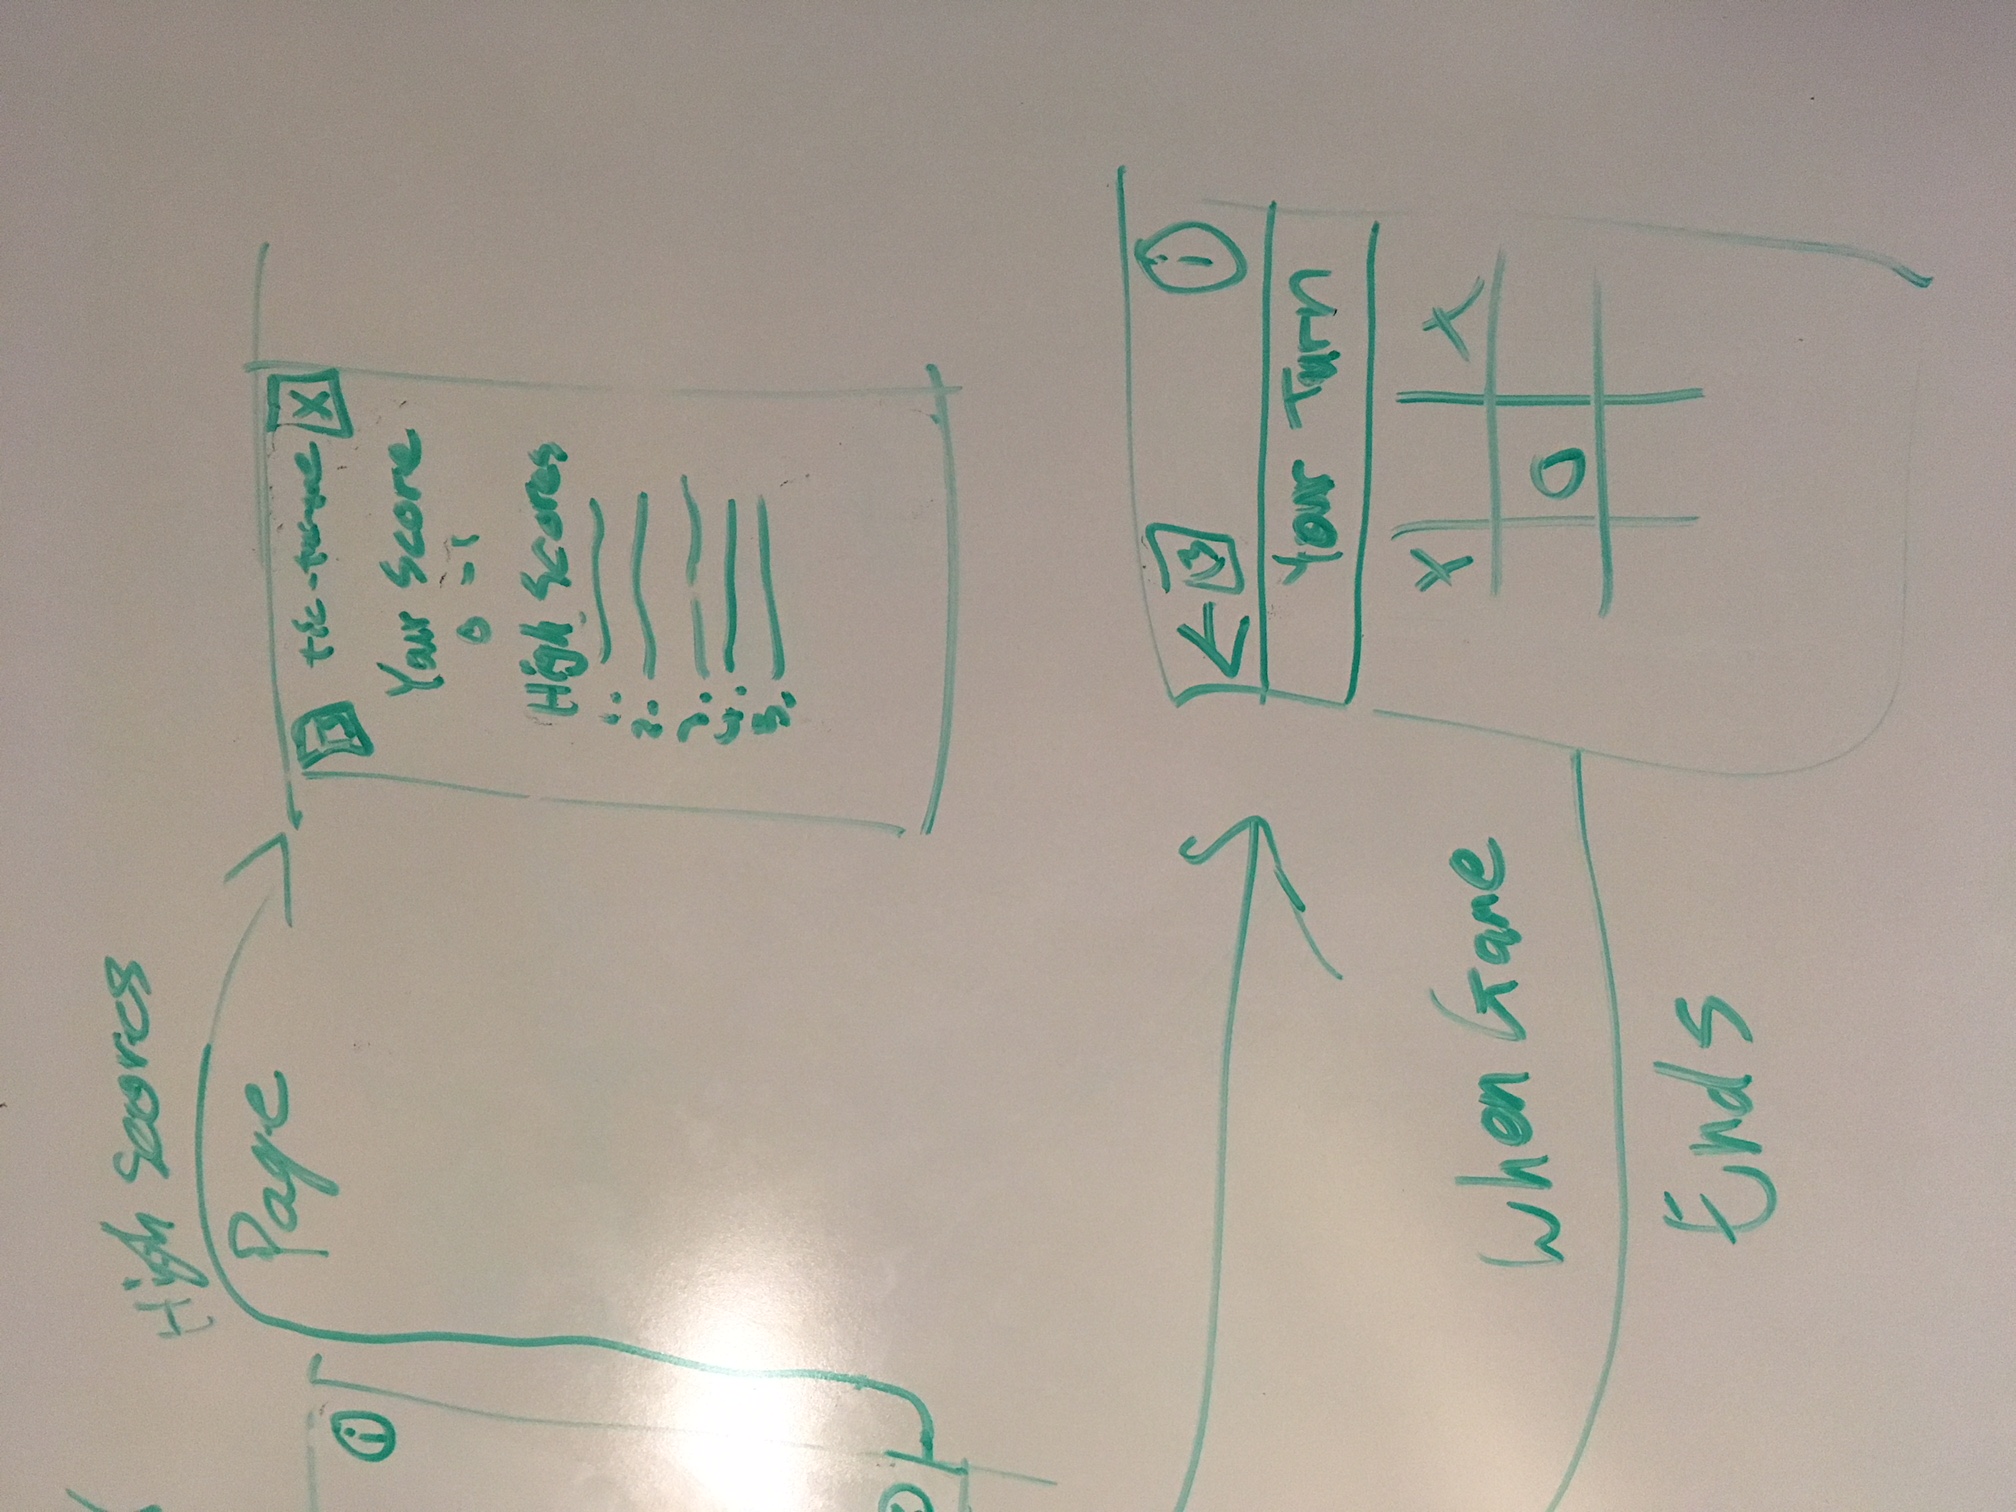 High Scores
Page
i
X
Your Score
0 - 1
High Scores
1.
2.
3.
4.
5.
<
i
Your Turn
X X
O
When Game
Ends